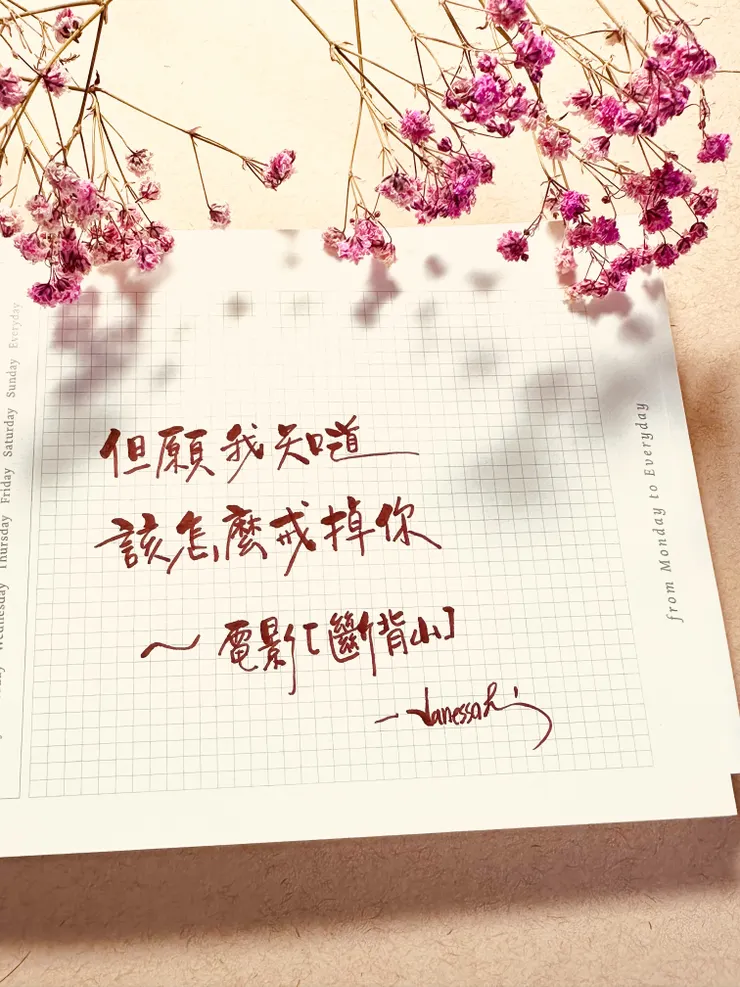 但願我知道
該怎麼戒掉你
～電影「斷背山」
—Vanessa Li
from Monday to Everyday
Wednesday Thursday Friday Saturday Sunday Everyday